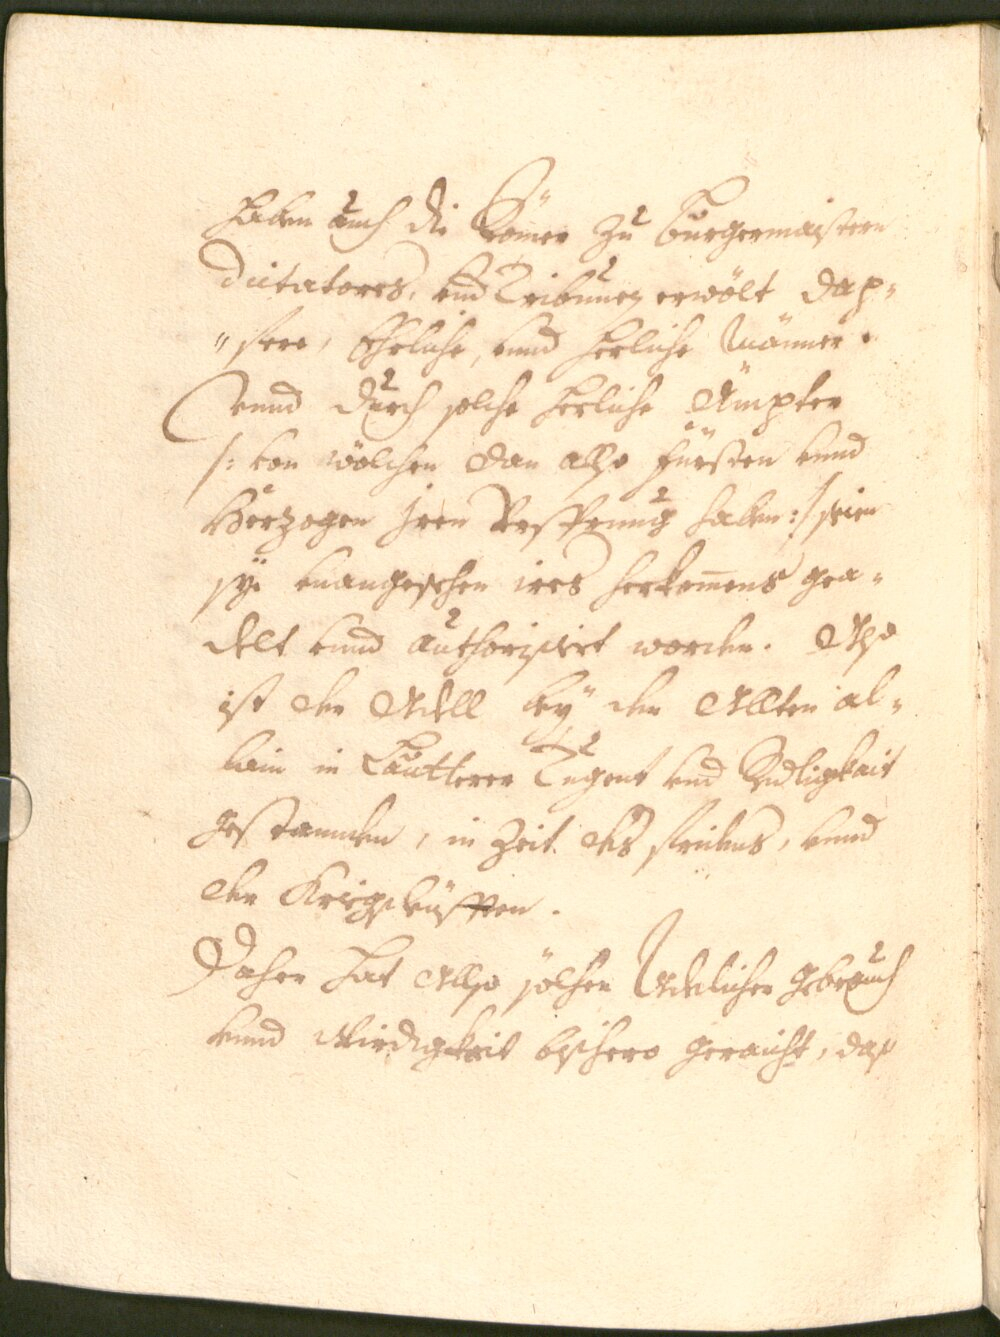 haben auch die Römer zu Burgermaistern
Dictatores, und Tribunen erwölt dap=
"fere, Ehrliche, vnnd herliche Männer.
vnnd durch solche herliche Ämpter
/: von wölchen dan allso fürsten vnnd
Hërzogen jren Vrsprung haben :/ seien
sÿ vnangesehen ires herkom̄ens gea=
delt vnnd authorisirt worden. Also
ist der Adell beÿ den Allten al=
lain in Lautterer Tugent vnd Redligkait
gestannden, in Zeit des fridens, vnnd
der Kriegsleüfften.
Daher hat Allso sölcher Adelicher gebrauch
vnnd Wirdigkait bishero geraicht, das